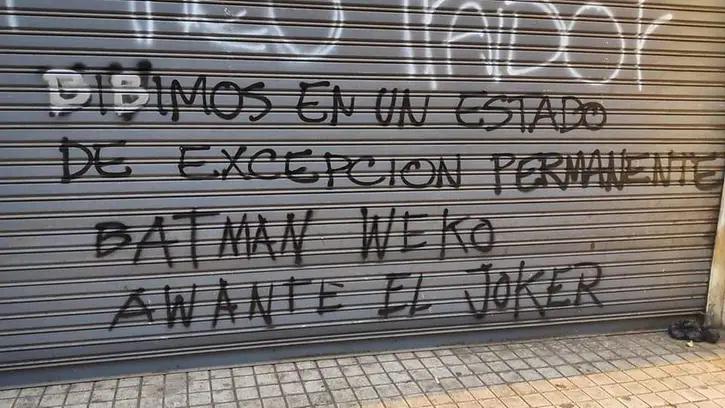 BIBIMOS EN UN ESTADO
DE EXCEPCION PERMANENTE
BATMAN WEKO
AWANTE EL JOKER